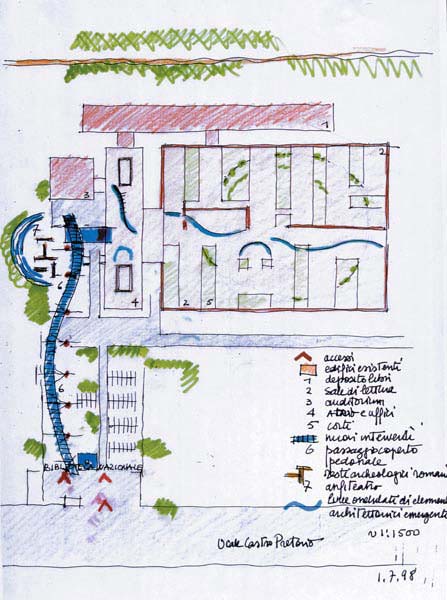 1
2
3
7
6
4
2
5
6
BIBLIOTECA NAZIONALE
accessi
edifici esistenti
1 deposito libri
2 sale di lettura
3 auditorium
4 atrio e uffici
5 corti
nuovi interventi
6 passaggio coperto
pedonale
resti archeologici romani
7 anfiteatro
linee ondulate di elementi
architettonici emergenti
Viale Castro Pretorio
1:1500
1.7.98